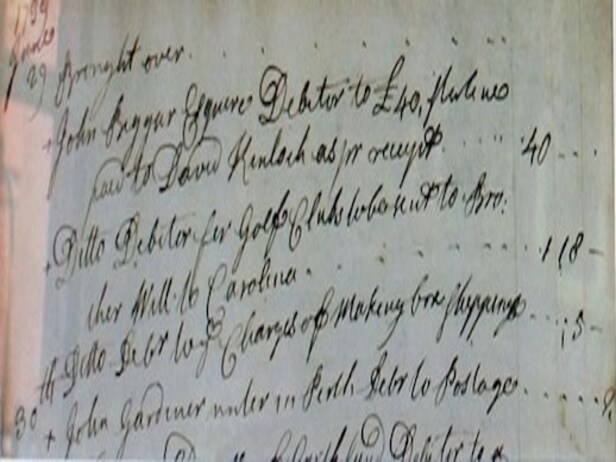 1739
June
29 Brought over.
+ John Biggar Esquire Debitor to £40, sterling
paid to David Kinloch as pr receipt 40
+ Ditto Debitor for Golf Clubs to be sent to Bro:
ther Will to Carolina 1 18
th Ditto Debr to ye Charges of making box shipping 5
30 + John Gardiner in Perth Debr to Postage
Debitor to a